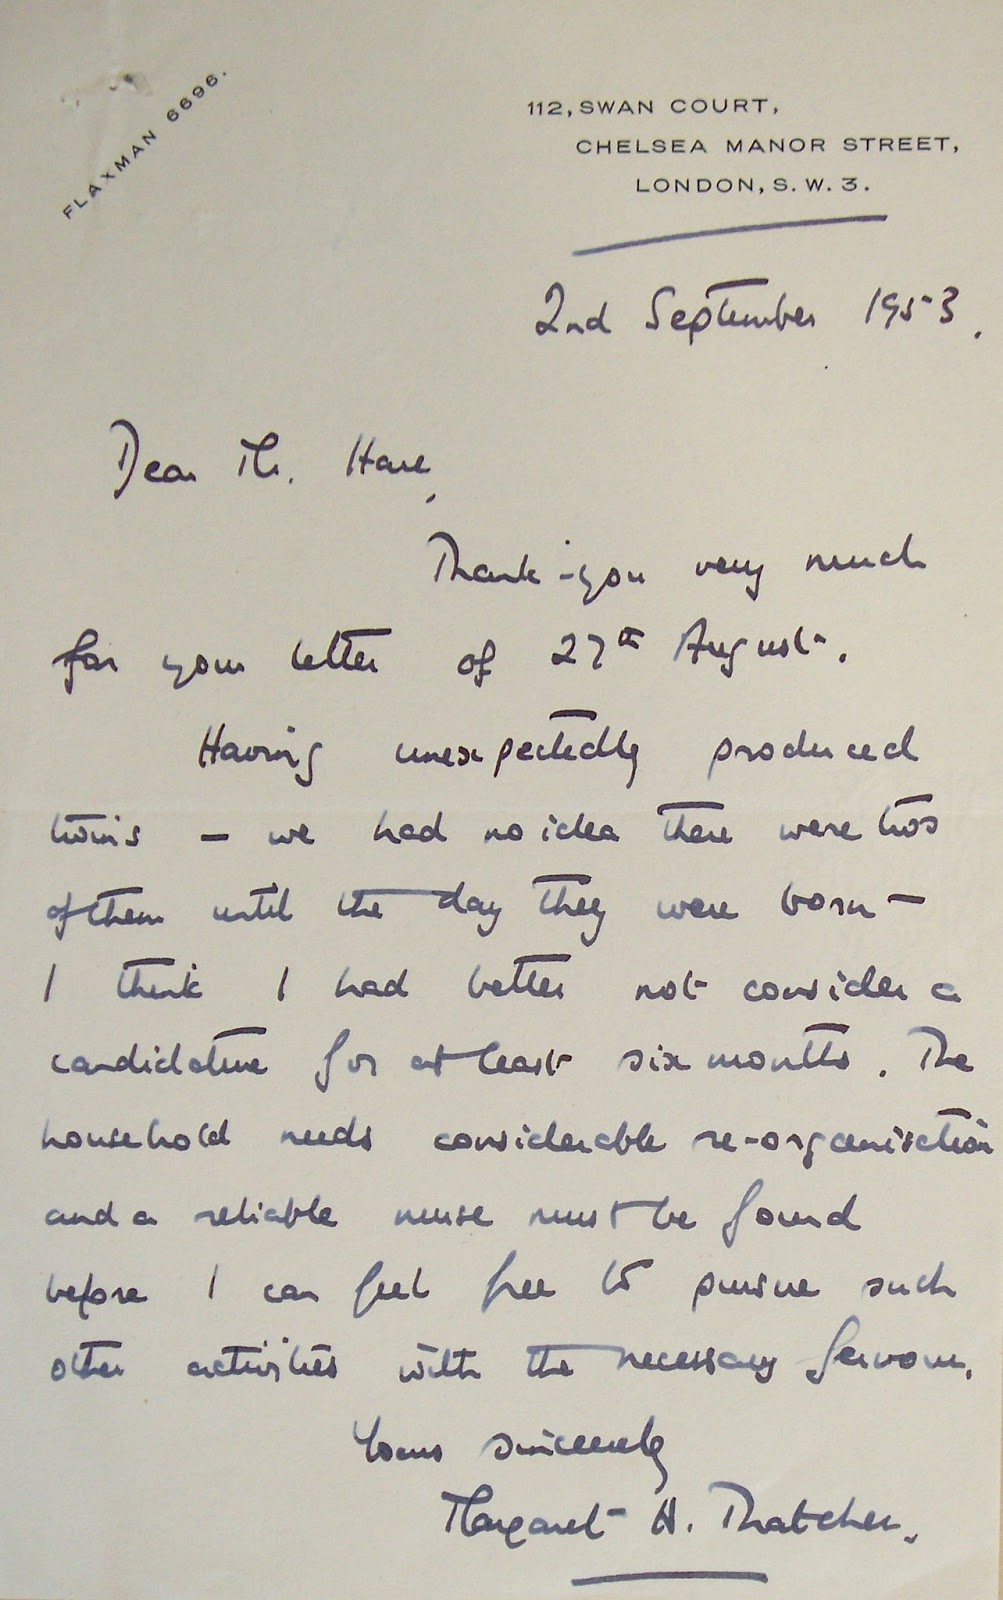 FLAXMAN 6696.
112, SWAN COURT,
CHELSEA MANOR STREET,
LONDON, S.W.3.
2nd September 1953.
Dear Mr. Hare,
Thank-you very much
for your letter of 27th August.
Having unexpectedly produced
twins — we had no idea there were two
of them until the day they were born —
I think I had better not consider a
candidature for at least six months. The
household needs considerable re-organisation
and a reliable nurse must be found
before I can feel free to pursue such
other activities with the necessary fervour.
Yours sincerely
Margaret H. Thatcher.